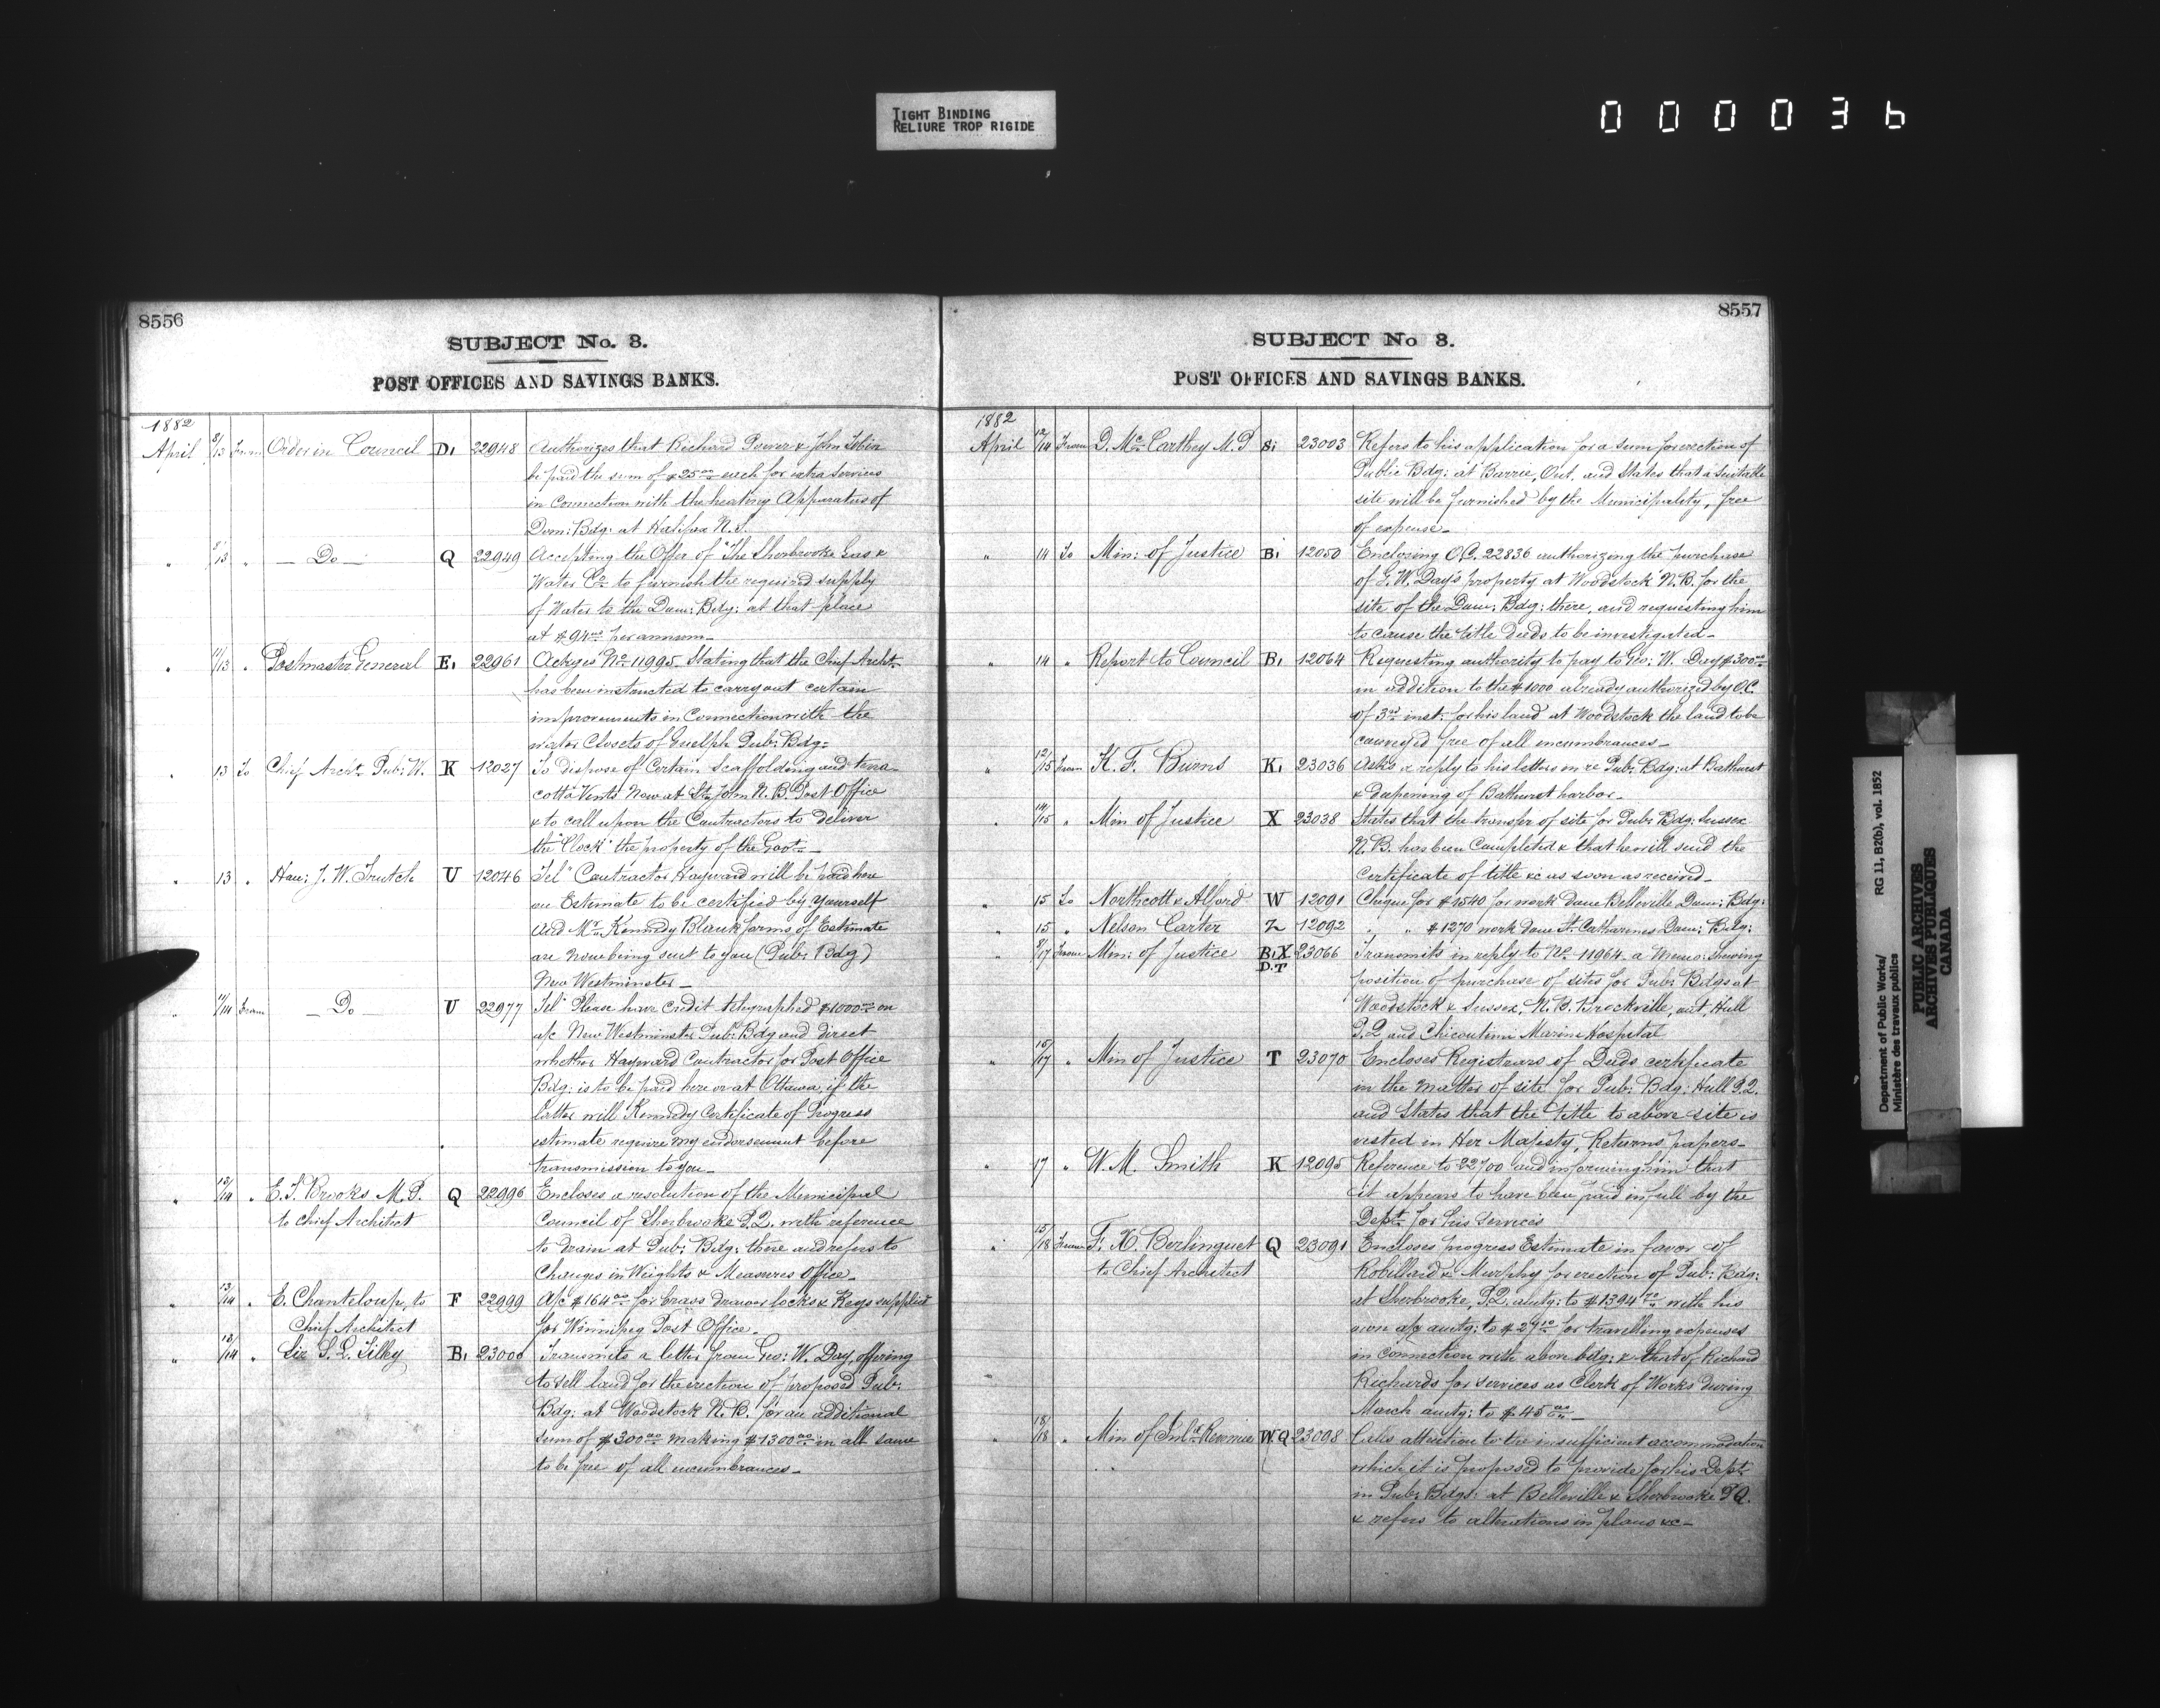 TIGHT BINDING
RELIURE TROP RIGIDE
000036
8556
SUBJECT No. 3.
POST OFFICES AND SAVINGS BANKS.
1882
April 8/13 From Order in Council D1 22948 Authorizes that Richard Power & John Tobin
be paid the sum of $25.00 each for extra services
in connection with the heating Apparatus of
Dom: Bdg: at Halifax N.S.
" 8/13 " — Do — Q 22949 Accepting the Offer of "The Sherbrooke Gas &
Water Co to furnish the required supply
of Water to the Dom: Bdg: at that place
at $94.00 per annum—
" 11/13 " Postmaster General E1 22961 Ackges No 11995. Stating that the Chief Archt
has been instructed to carry out certain
improvements in Connection with the
water Closets of Guelph Pub: Bdg:
" 13 To Chief Archt Pub: W. K 12027 To dispose of Certain Scaffolding and terra
cotta Vents Now at St John N.B. Post Office
& to call upon the Contractors to deliver
the "Clock" the property of the Govt—
" 13 " Hon: J. W. Trutch U 12046 Tel" Contractor Hayward will be paid here
on Estimate to be certified by yourself
and Mr Kennedy Blank forms of Estimate
are now being sent to you (Pub: Bdg)
New Westminster—
" 11/14 From — Do — U 22977 Tel" Please have credit telegraphed $1000.00 on
a/c New Westminster Pub: Bdg and direct
whether Hayward Contractor for Post Office
Bdg: is to be paid here or at Ottawa, if the
latter will Kennedy Certificate of Progress
estimate require my endorsement before
transmission to you—
" 13/14 " E. T. Brooks M.P. Q 22996 Encloses a resolution of the Municipal
to Chief Architect Council of Sherbrooke P.Q. with reference
to drain at Pub: Bdg: there and refers to
Changes in Weights & Measures Office—
" 13/14 " E. Chanteloup, to F 22999 A/c $164.00 for brass drawer locks & Keys supplied
Chief Architect for Winnipeg Post Office—
" 13/14 " Sir S. L. Tilley B1 23000 Transmits a letter from Geo: W. Day, offering
to sell land for the erection of proposed Pub:
Bdg: at Woodstock N.B. for an additional
sum of $300.00 making $1300.00 in all same
to be free of all encumbrances—
8557
SUBJECT No 3.
POST OFFICES AND SAVINGS BANKS.
1882
April 12/14 From D. McCarthey M.P S1 23003 Refers to his application for a sum for erection of
Public Bdg: at Barrie, Ont. and States that a Suitable
site will be furnished by the Municipality, free
of expense—
" 14 To Min: of Justice B1 12050 Enclosing O.C. 22836 authorizing the purchase
of G. W. Day's property at Woodstock N.B. for the
site of the Dom: Bdg: there, and requesting him
to cause the title deeds to be investigated—
" 14 " Report to Council B1 12064 Requesting authority to pay to Geo: W. Day $300.00
in addition to the $1000 already authorized by O.C.
of 3rd inst: for his land at Woodstock the land to be
conveyed free of all encumbrances—
" 12/15 From K. F. Burns K1 23036 Asks a reply to his letters in re Pub: Bdg: at Bathurst
& deepening of Bathurst harbor—
" 14/15 " Min of Justice X 23038 States that the transfer of site for Pub: Bdg: Sussex
N.B. has been Completed & that he will send the
Certificate of title &c as soon as received—
" 15 To Northcott & Alford W 12091 Cheque for $1540 for work done Belleville Dom: Bdg:
" 15 " Nelson Carter Z 12092 " " $1270 work done St Catharines Dom: Bdg:
" 8/17 From Min: of Justice B1 X D.T 23066 Transmits in reply to No 11964 a Memo: Showing
position of purchase of sites for Pub: Bdgs at
Woodstock & Sussex, N.B. Brockville, ont, Hull
P.Q and Chicoutimi Marine Hospital
" 15/17 " Min of Justice T 23070 Encloses Registrars of Deeds certificate
in the matter of site for Pub: Bdg: Hull P.Q.
and States that the title to above site is
vested in Her Majesty, Returns papers—
" 17 " W. M. Smith K 12095 Reference to 22700 and informing him that
it appears to have been paid in full by the
Dept for his services
" 15/18 From F. X. Berlinguet Q 23091 Encloses progress Estimate in favor of
to Chief Architect Robillard & Murphy for erection of Pub: Bdg:
at Sherbrooke, P.Q. amtg: to $1394 with his
own a/c amtg: to $27.10 for travelling expenses
in connection with above bdg: & that of Richard
Richards for services as Clerk of Works during
March amtg: to $45.00—
" 18/18 " Min of Inld Revenue W.Q 23098 Calls attention to the insufficient accommodation
which it is proposed to provide for his Dept
in Pub: Bdgs: at Belleville & Sherbrooke P.Q.
& refers to alterations in plans &c—
Department of Public Works/
Ministère des travaux publics
RG 11, B2(b), vol. 1852
PUBLIC ARCHIVES
ARCHIVES PUBLIQUES
CANADA